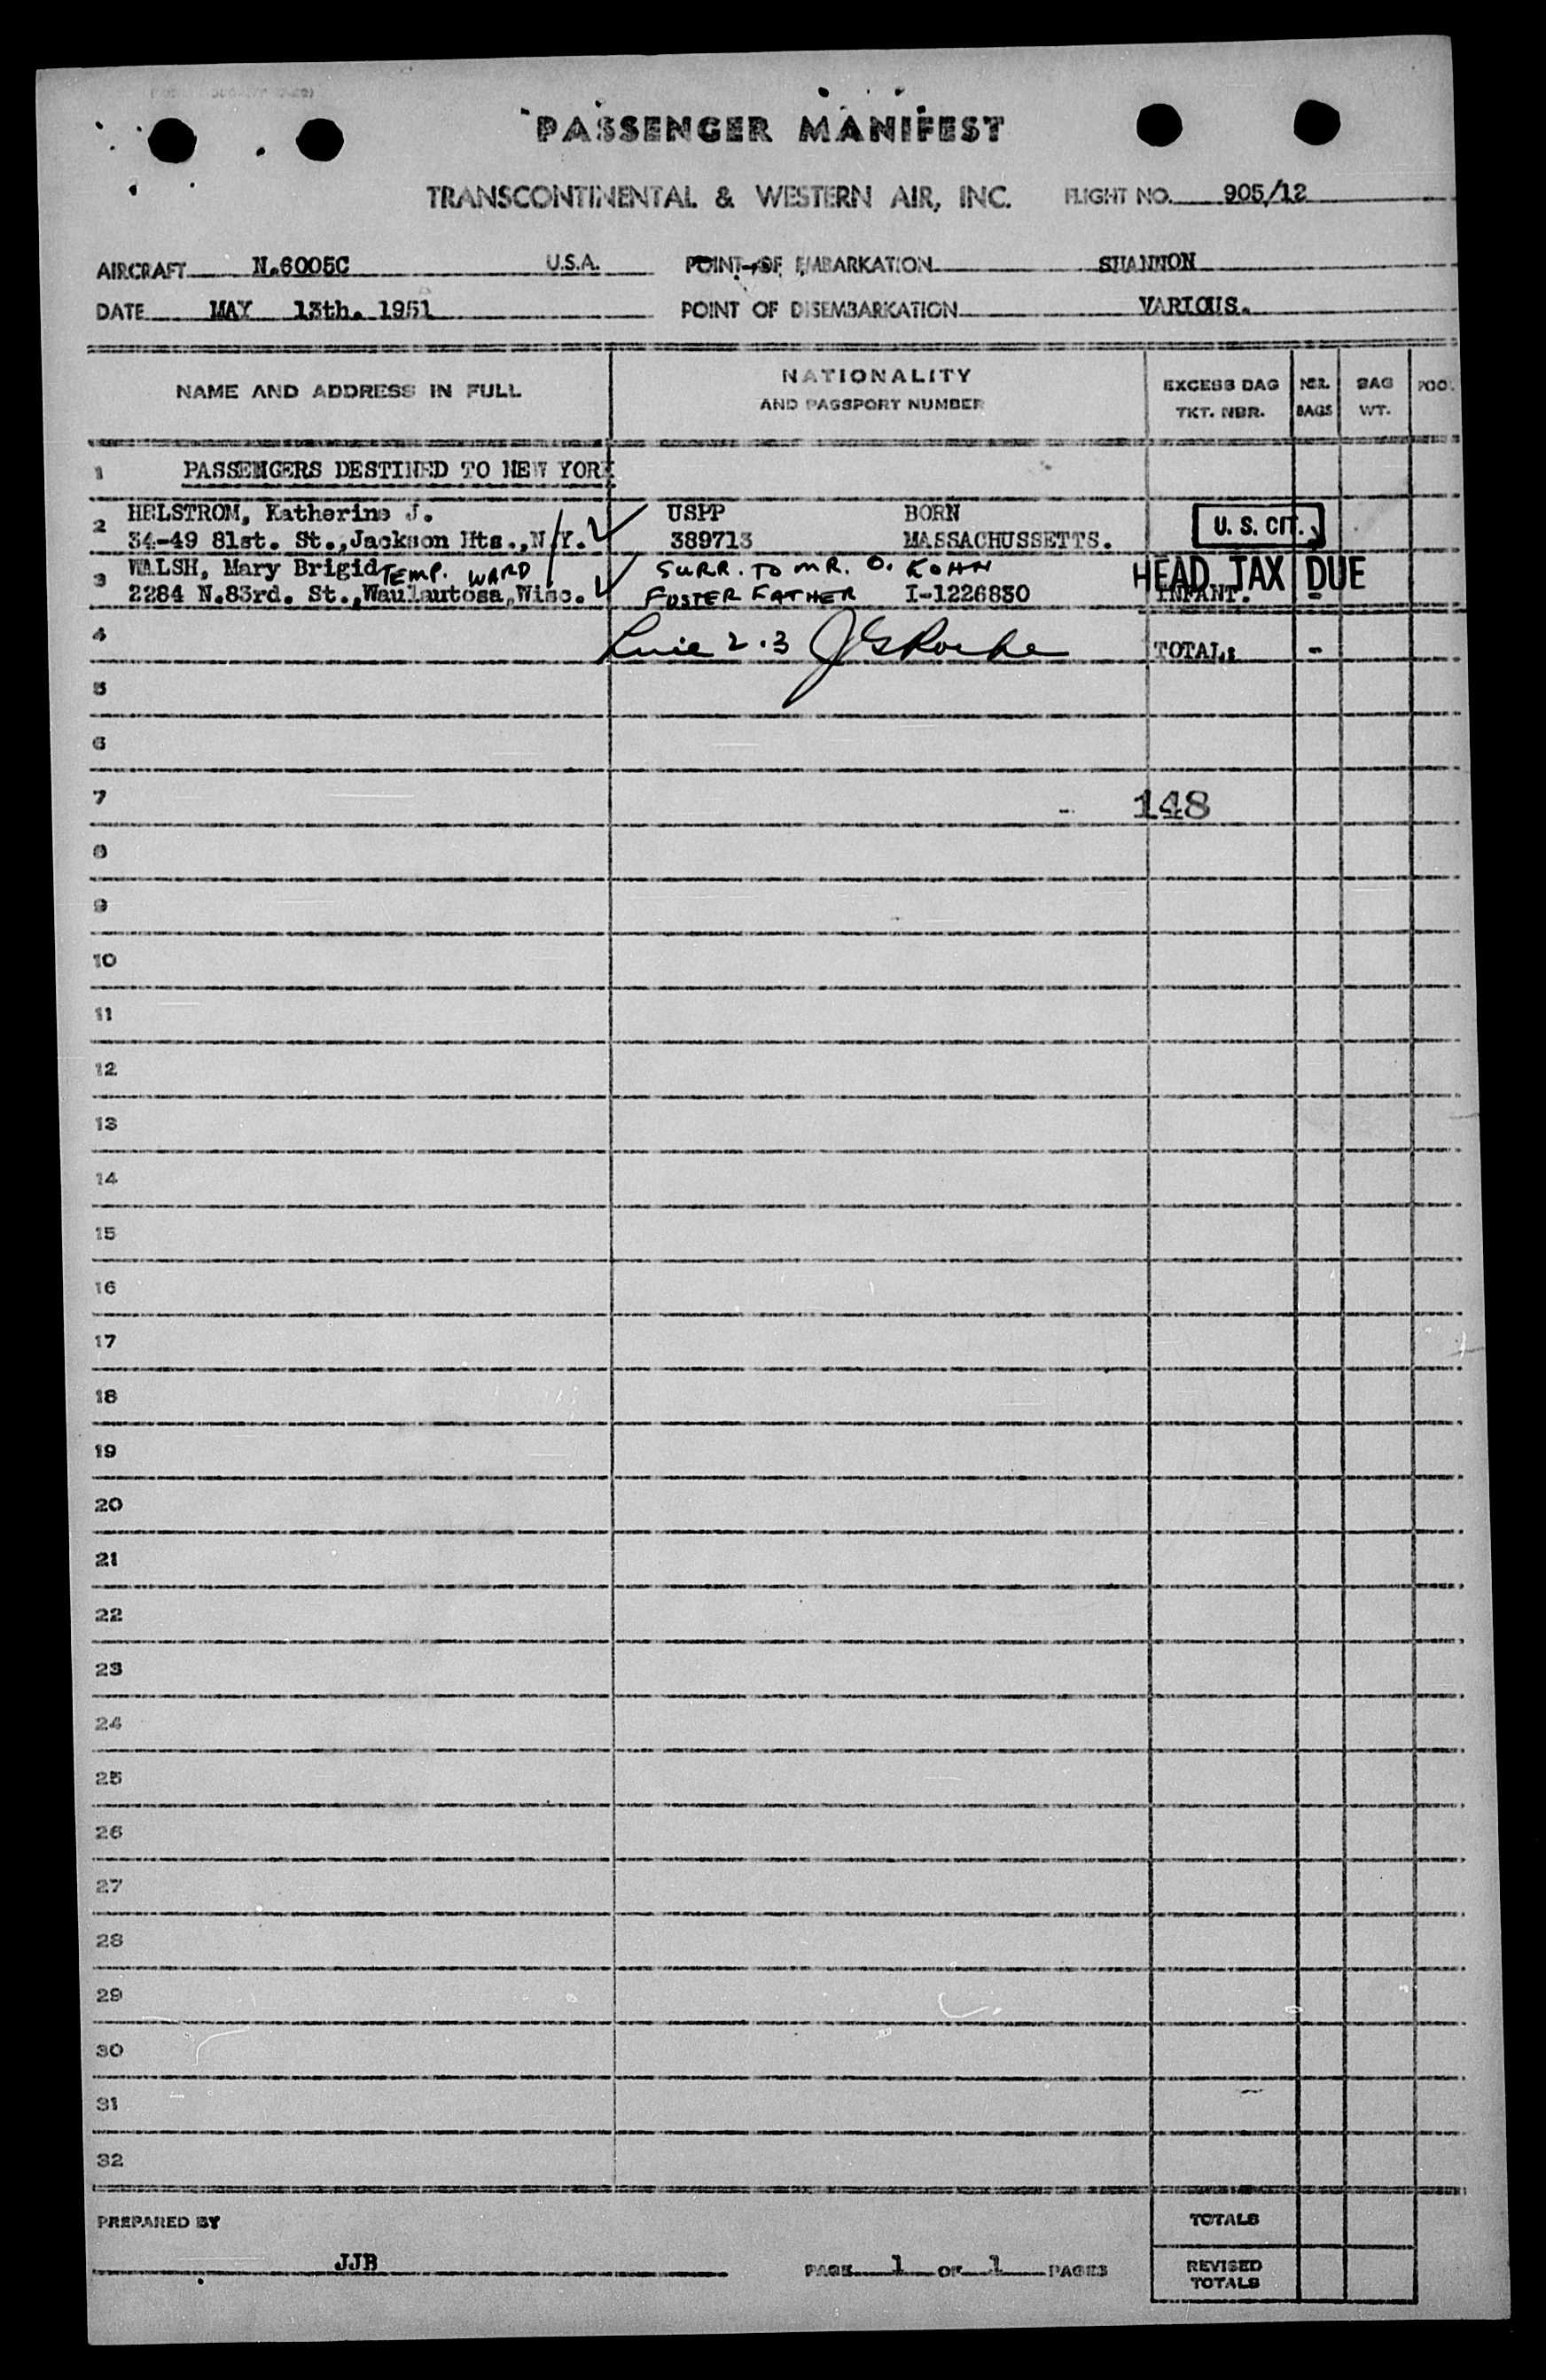 PASSENGER MANIFEST
TRANSCONTINENTAL & WESTERN AIR, INC. FLIGHT NO. 905/12
AIRCRAFT N.6005C U.S.A. POINT OF EMBARKATION SHANNON
DATE MAY 13th. 1951 POINT OF DISEMBARKATION VARIOUS.
NAME AND ADDRESS IN FULL
NATIONALITY
AND PASSPORT NUMBER
EXCESS BAG
TKT. NBR.
NBR.
BAGS
BAG
WT.
1 PASSENGERS DESTINED TO NEW YORK
2 HELSTROM, Katherine J. USPP BORN
34-49 81st. St.,Jackson Hts.,N.Y. 389713 MASSACHUSSETTS. U. S. CIT.
3 WALSH, Mary Brigid TEMP. WARD SURR. TO MR. O. KOHN HEAD TAX DUE
2284 N.83rd. St.,Waulautosa,Wisc. FOSTER FATHER I-1226830 INFANT. -
4 2.3 TOTAL: -
5
6
7 148
8
9
10
11
12
13
14
15
16
17
18
19
20
21
22
23
24
25
26
27
28
29
30
31
32
PREPARED BY TOTALS
JJB PAGE 1 OF 1 PAGES REVISED
TOTALS